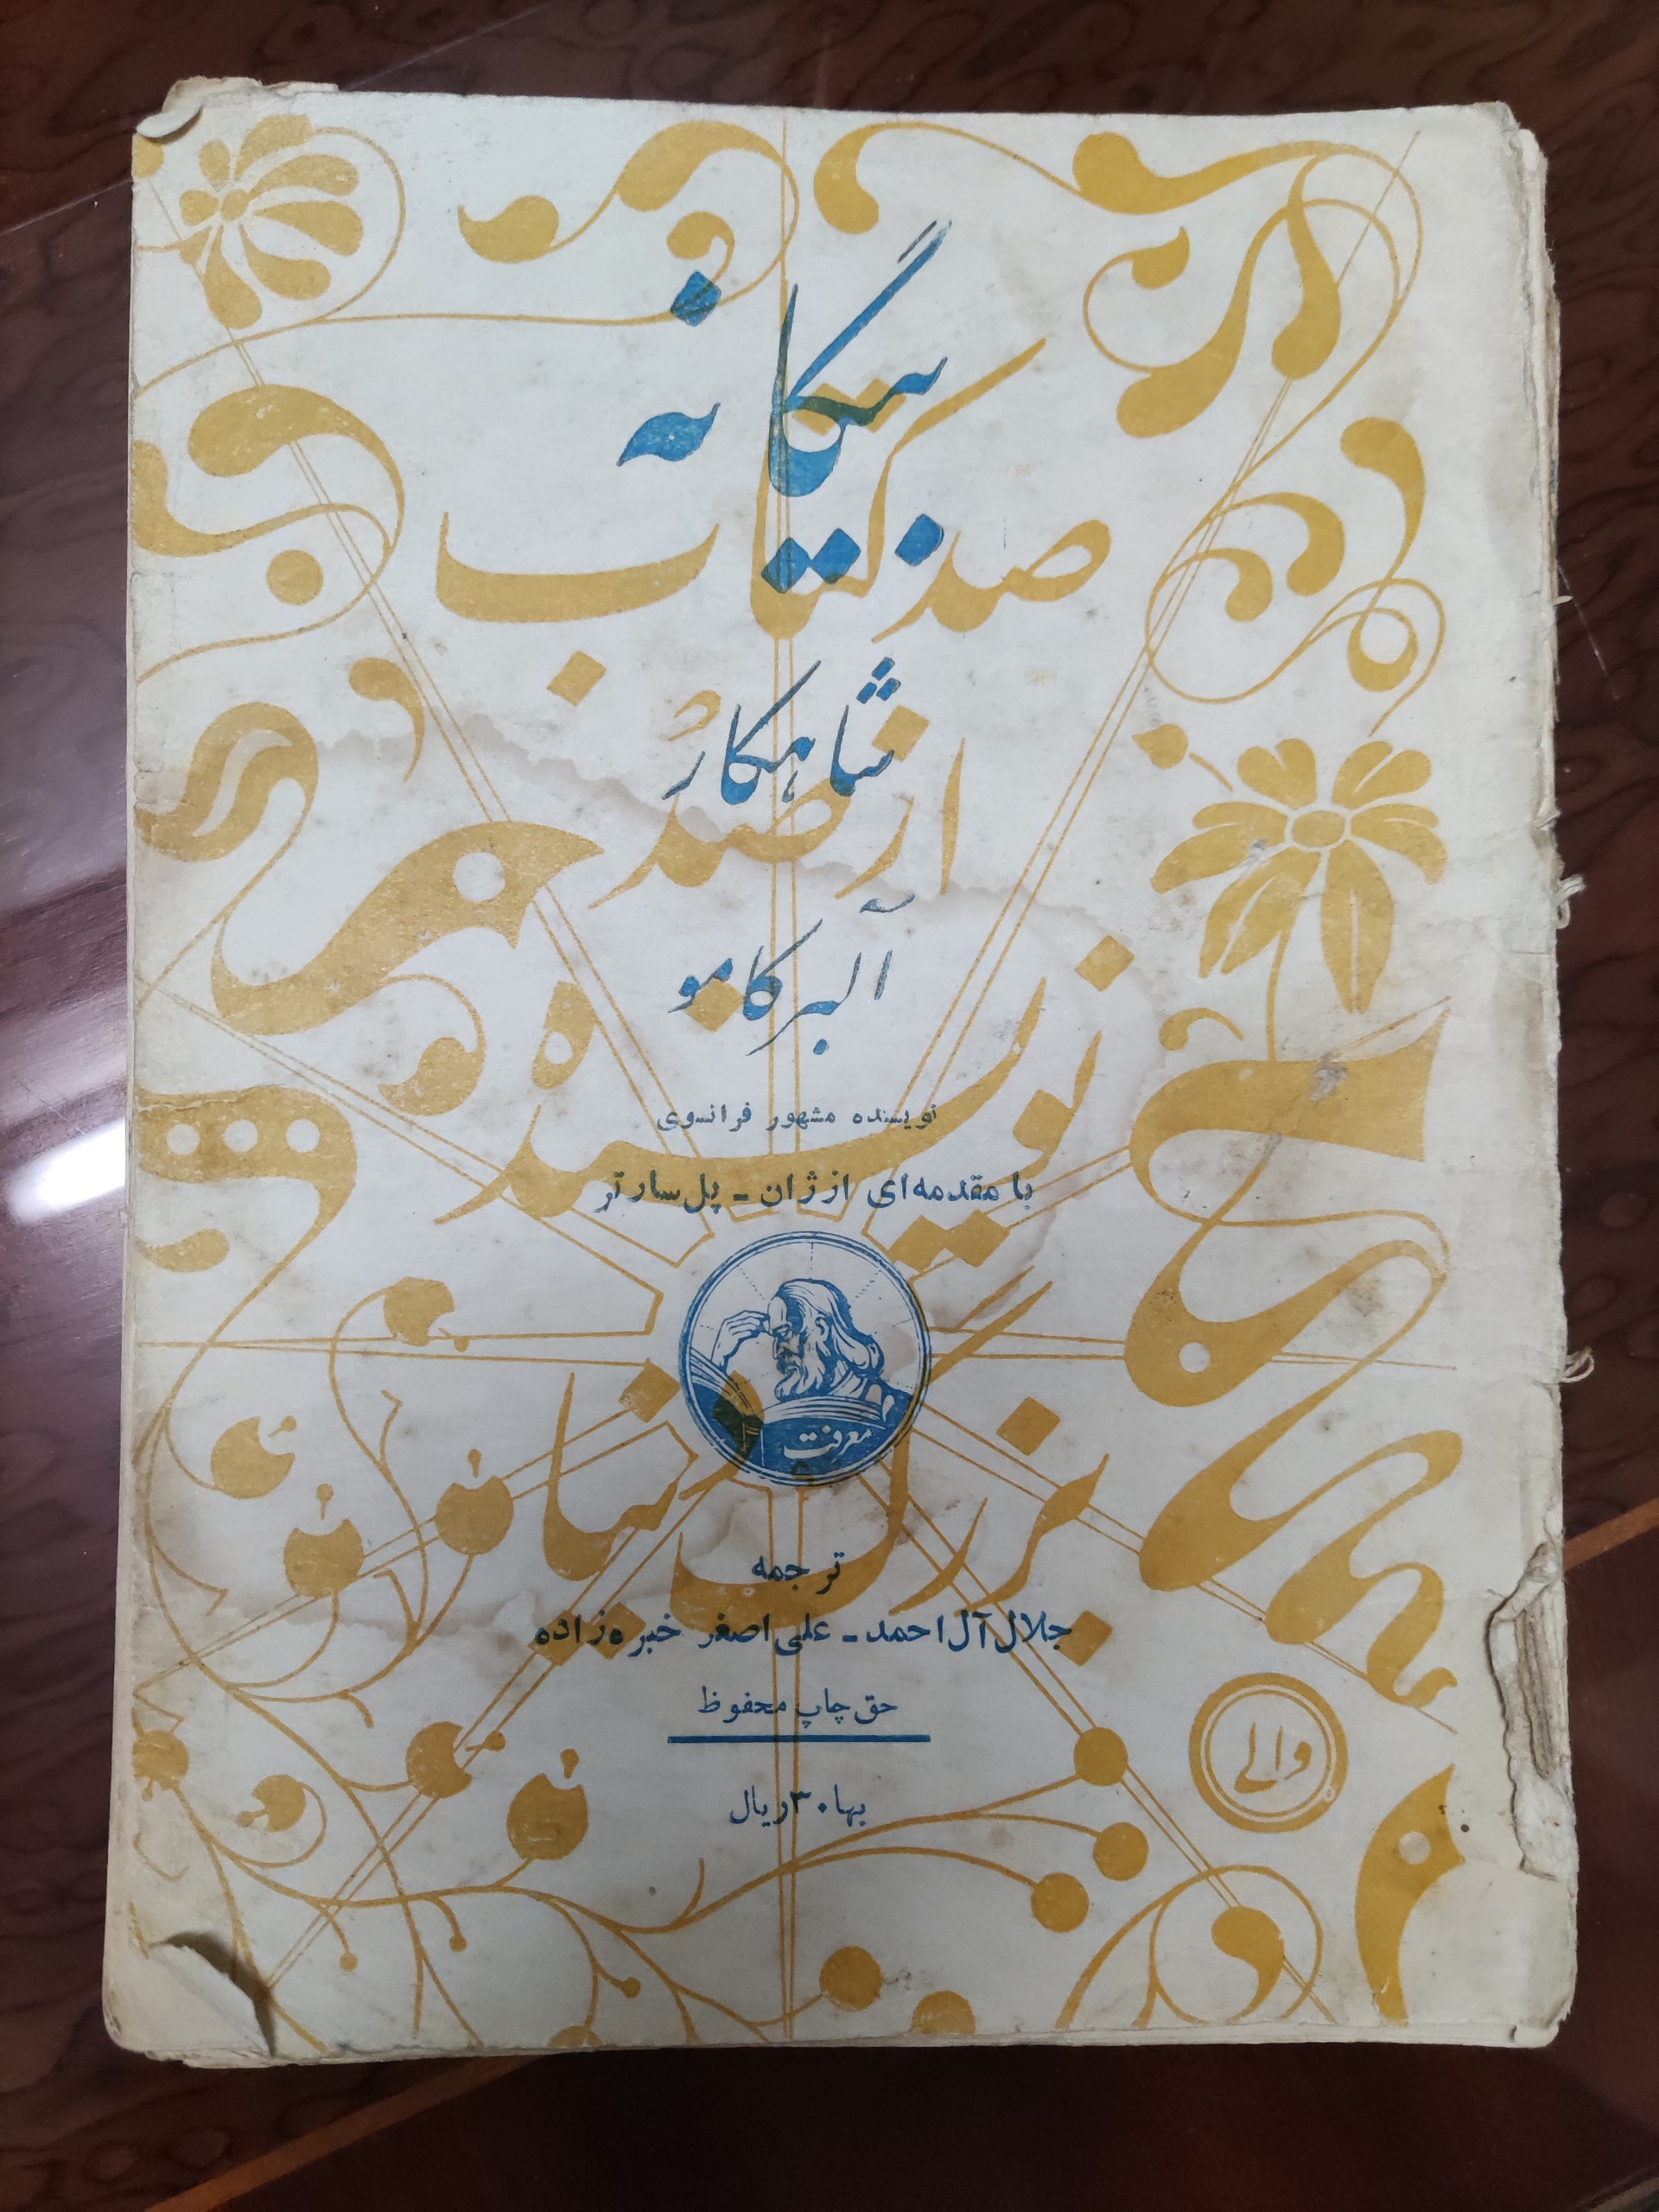 بیگانه
صد کتاب
شاهکار
از صد
آلبر کامو
نویسنده
نویسنده مشهور فرانسوی
با مقدمه‌ای از ژان - پل سارتر
معرفت
بزرگ دنیا
ترجمه
جلال آل احمد - علی اصغر خبره زاده
حق چاپ محفوظ
والی
بها ۳۰ ریال